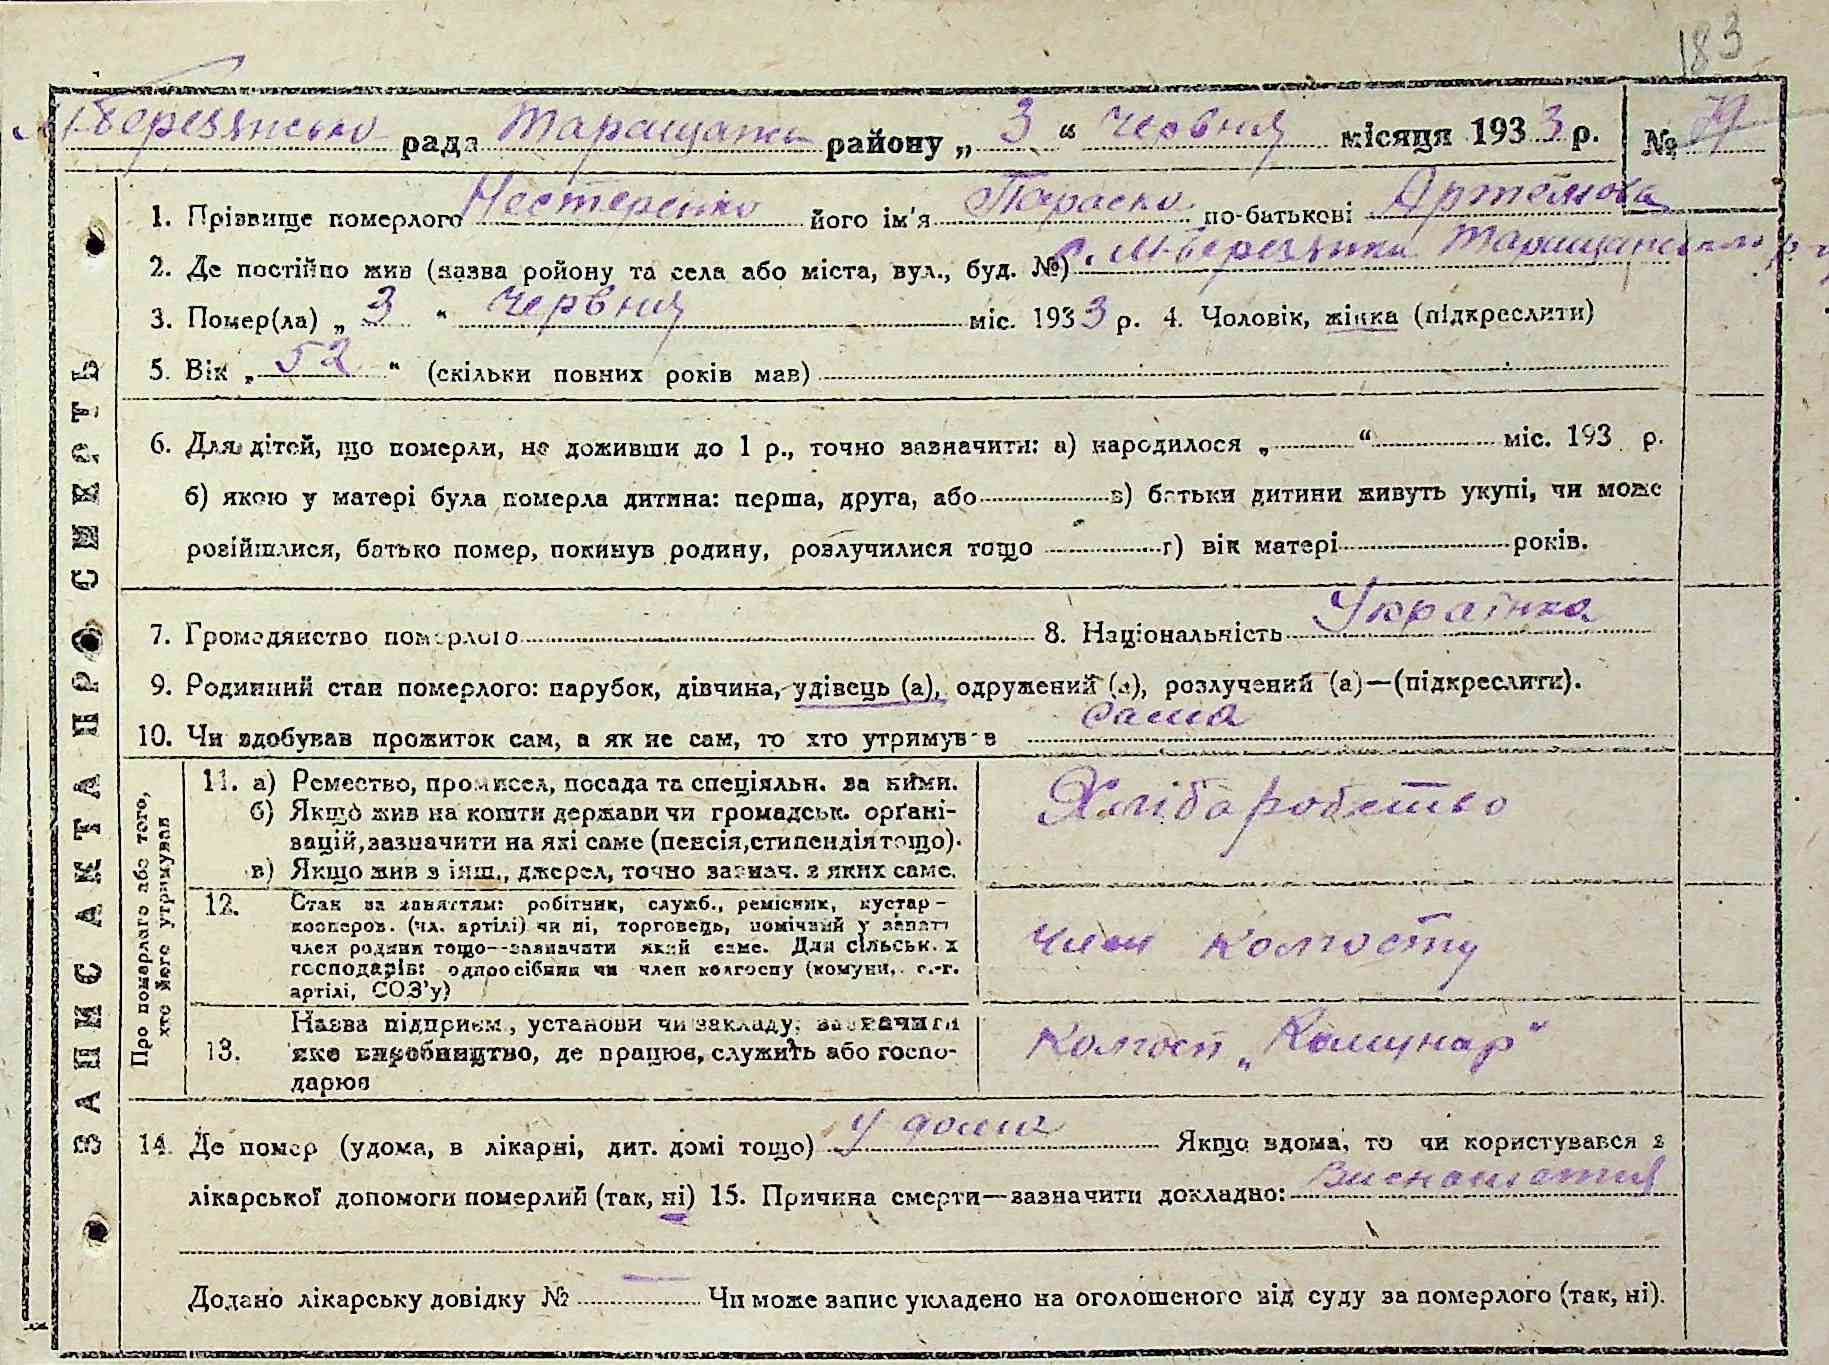 183
М-Березянсько рада Таращансь району „ 3 “ червня місяця 1933 р. № 79
1. Прізвище померлого Нестеренко його ім'я Параска по-батькові Артемова
2. Де постійно жив (назва ройону та села або міста, вул., буд. №) с. М-Березянка Таращанського р-ну
3. Помер(ла) „ 3 “ червня міс. 1933 р. 4. Чоловік, жінка (підкреслити)
5. Вік „ 52 “ (скільки повних років мав)
6. Для дітей, що померли, не доживши до 1 р., точно зазначити: а) народилося „ “ міс. 193 р.
б) якою у матері була померла дитина: перша, друга, або в) батьки дитини живуть укупі, чи може
розійшлися, батько помер, покинув родину, розлучилися тощо г) вік матері років.
7. Громадянство померлого 8. Національність Українка
9. Родинний стан померлого: парубок, дівчина, удівець (а), одружений (а), розлучений (а)—(підкреслити).
10. Чи здобував прожиток сам, а як не сам, то хто утримував сама
ЗАПИС АКТА ПРО СМЕРТЬ
Про померлого або того,
хто його утримував
11. а) Ремество, промисел, посада та спеціяльн. за ними.
б) Якщо жив на кошти держави чи громадськ. орґані-
зацій, зазначити на які саме (пенсія, стипендія тощо).
в) Якщо жив з інш., джерел, точно зазнач. з яких саме.
Хліборобство
12. Стан за заняттям: робітник, служб., ремісник, кустар-
кооперов. (чл. артілі) чи ні, торговець, помічний у занят.
член родини тощо—зазначити який саме. Для сільськ. х
господарів: одноосібник чи член колгоспу (комуни, с.-г.
артілі, СОЗ'у)
член колгоспу
13. Назва підприєм., установи чи закладу; зазначити
яке виробництво, де працює, служить або госпо-
дарює
Колгосп „Комунар“
14. Де помер (удома, в лікарні, дит. домі тощо) у дома Якщо вдома, то чи користувався з
лікарської допомоги померлий (так, ні) 15. Причина смерти—зазначити докладно:
Додано лікарську довідку № — Чи може запис укладено на оголошеного від суду за померлого (так, ні).